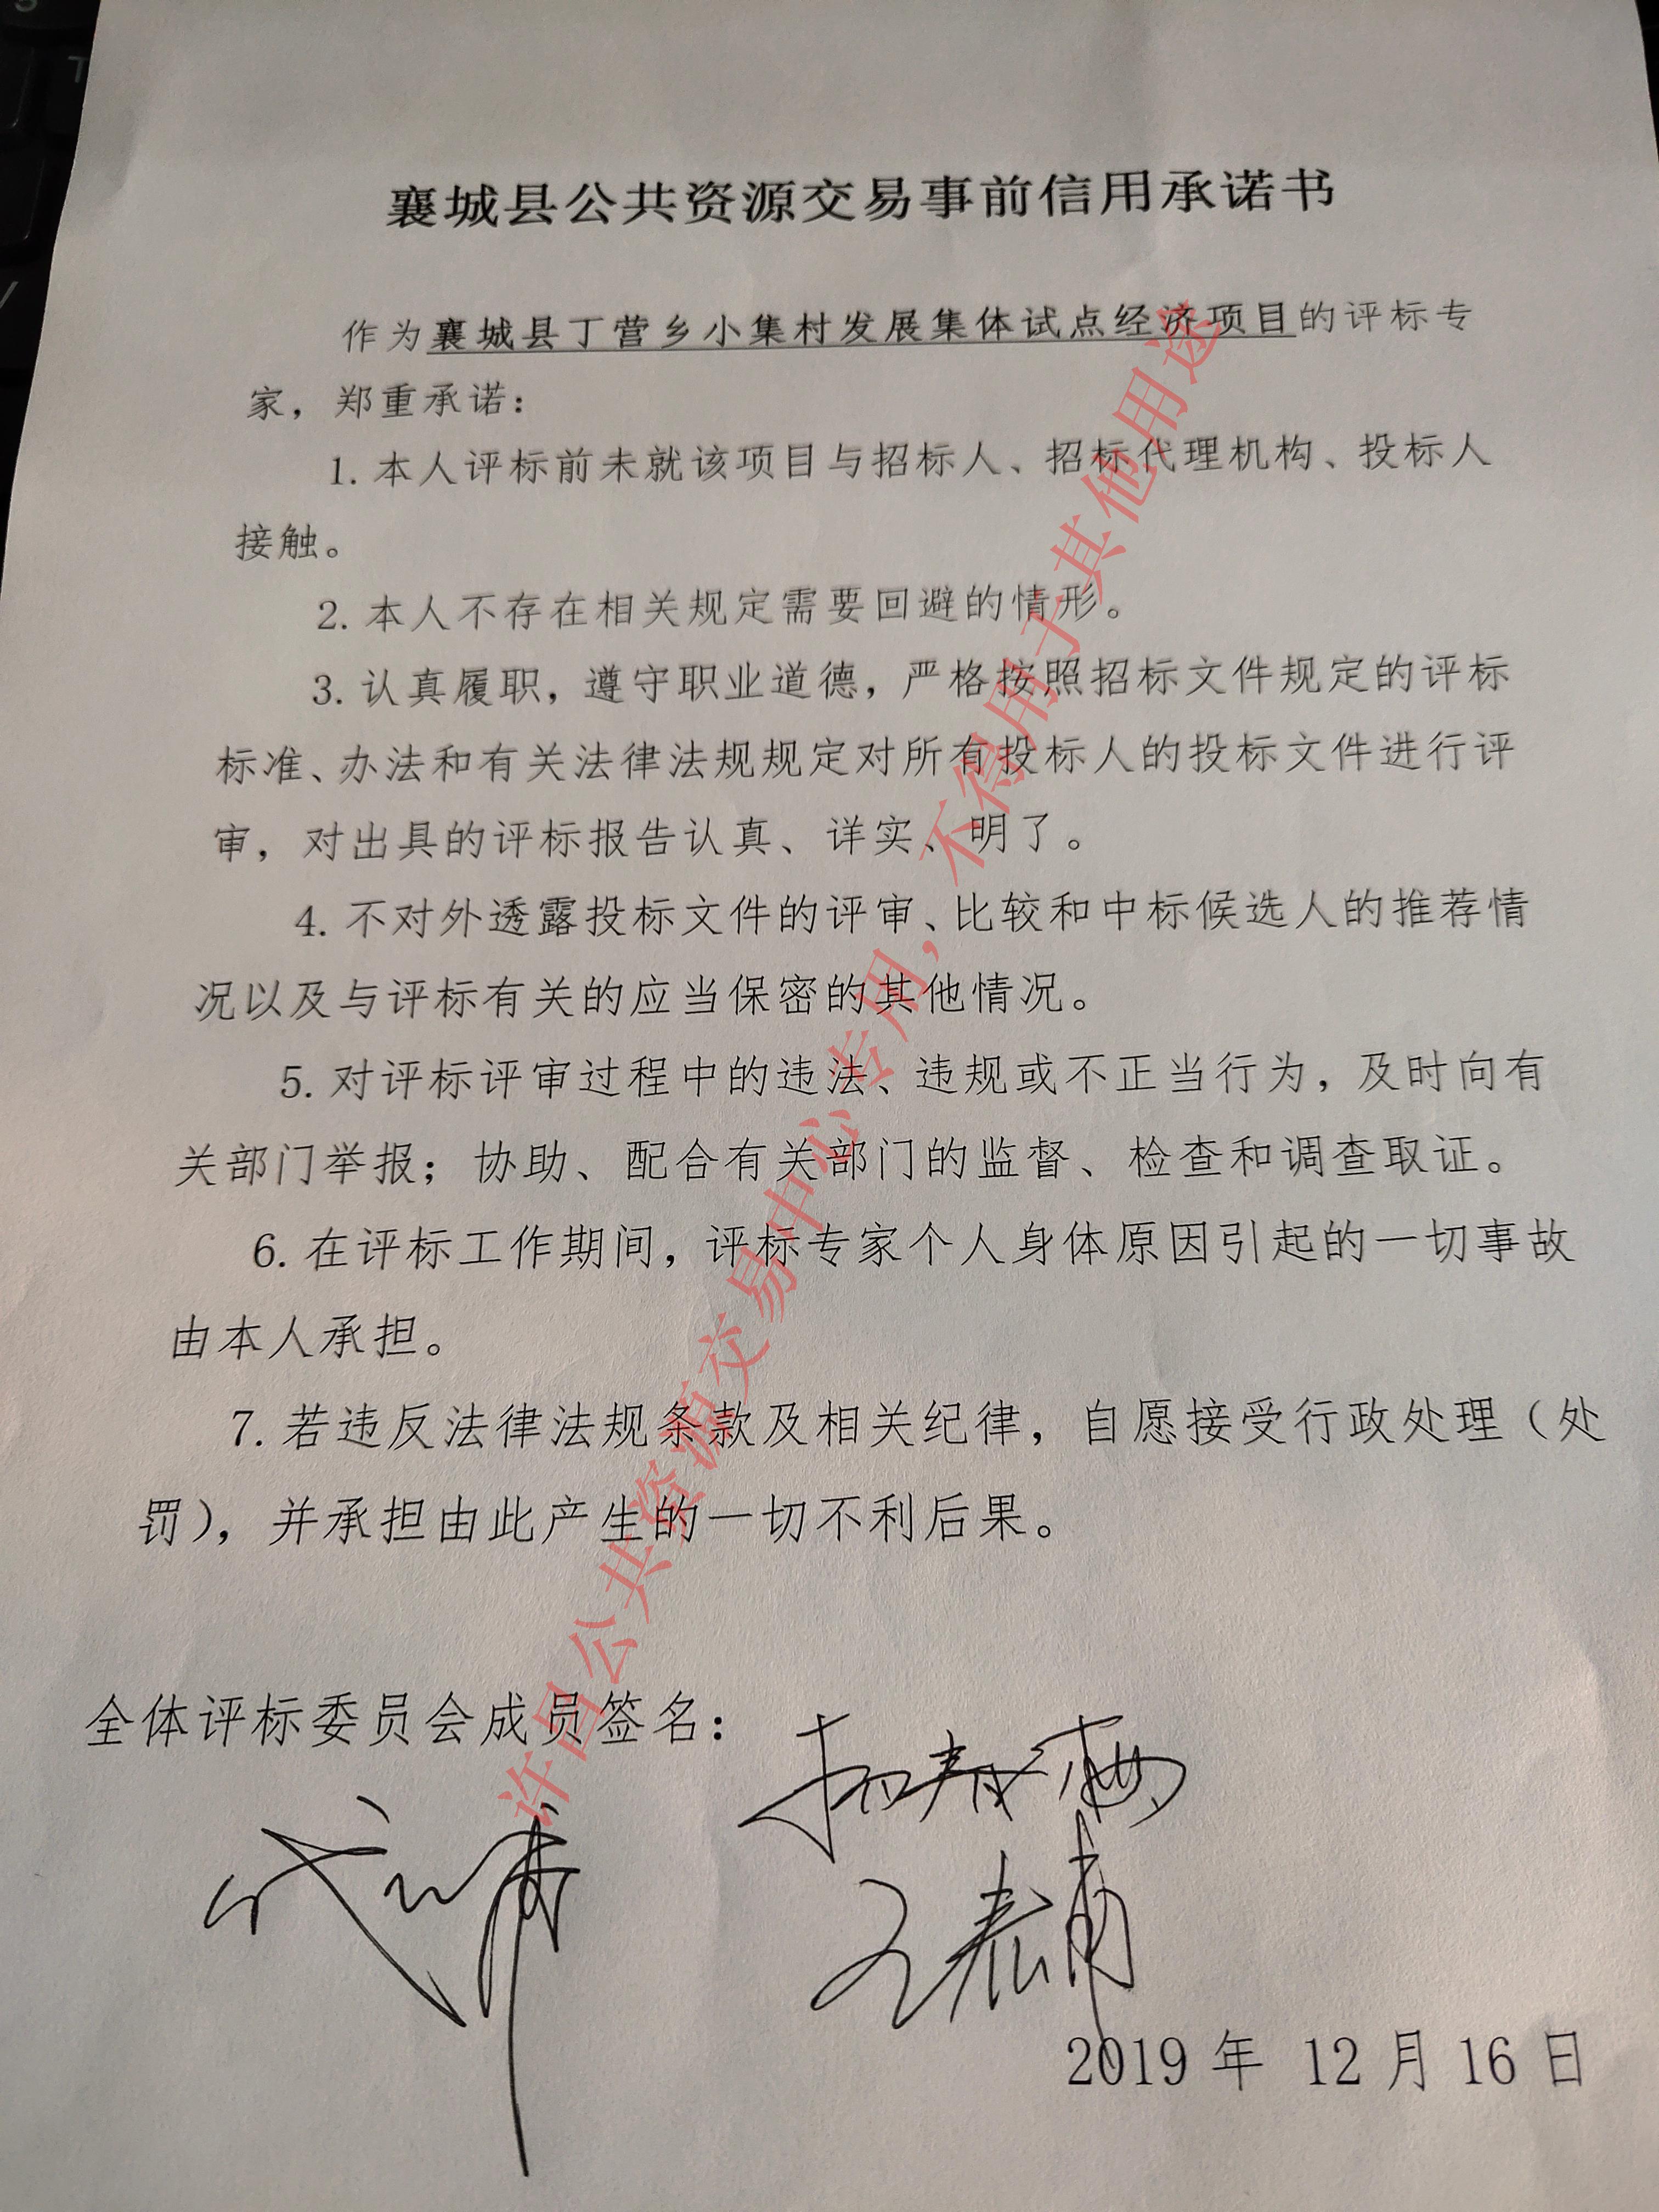 襄城县公共资源交易事前信用承诺书
作为襄城县丁营乡小集村发展集体试点经济项目的评标专
家，郑重承诺：
1.本人评标前未就该项目与招标人、招标代理机构、投标人
接触。
2.本人不存在相关规定需要回避的情形。
3.认真履职，遵守职业道德，严格按照招标文件规定的评标
标准、办法和有关法律法规规定对所有投标人的投标文件进行评
审，对出具的评标报告认真、详实、明了。
4.不对外透露投标文件的评审、比较和中标候选人的推荐情
况以及与评标有关的应当保密的其他情况。
5.对评标评审过程中的违法、违规或不正当行为，及时向有
关部门举报；协助、配合有关部门的监督、检查和调查取证。
6.在评标工作期间，评标专家个人身体原因引起的一切事故
由本人承担。
7.若违反法律法规条款及相关纪律，自愿接受行政处理（处
罚），并承担由此产生的一切不利后果。
全体评标委员会成员签名：
2019 年 12 月 16 日
许昌公共资源交易中心专用，不得用于其他用途